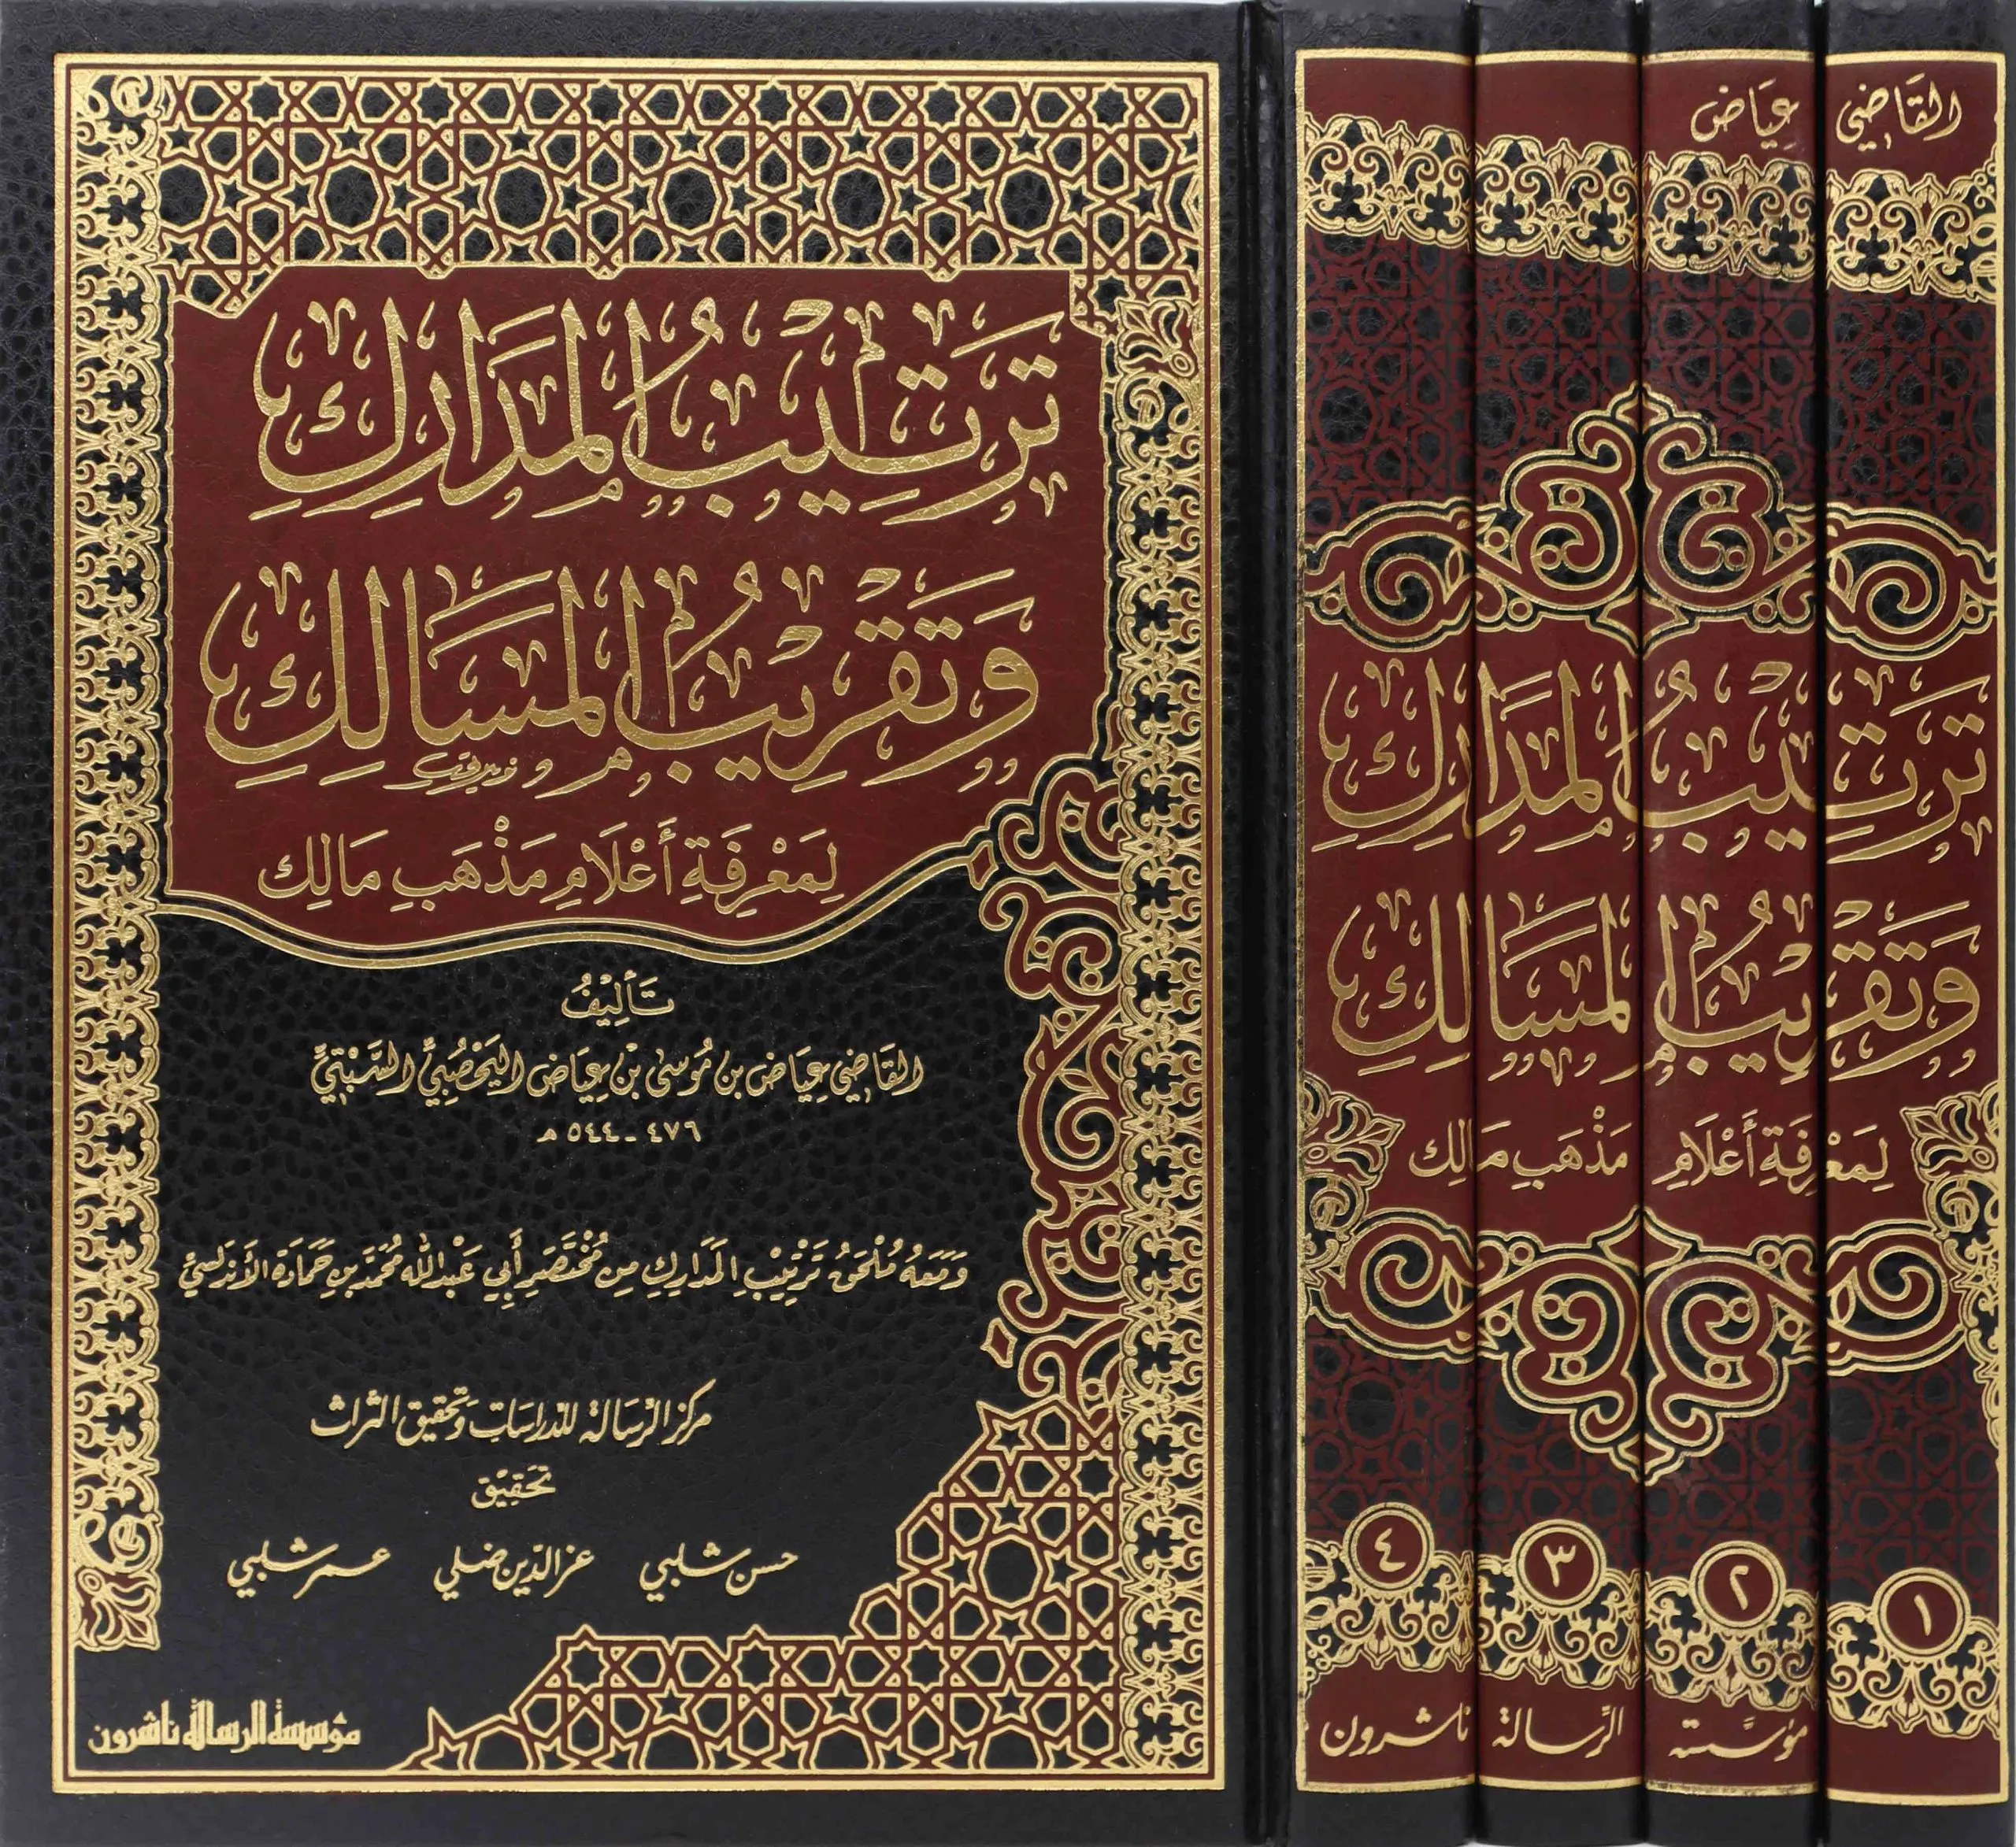 تَرْتِيبُ المَدَارِكِ
وَتَقْرِيبُ المَسَالِكِ
لِمَعْرِفَةِ أَعْلَامِ مَذْهَبِ مَالِك
تَأْلِيْفُ
القَاضِي عِيَاض بن مُوسَى بْن عِيَاض اليَحْصُبِيِّ السَّبْتِيِّ
٤٧٦ - ٥٤٤ هـ
وَمَعَهُ مُلْحَقُ تَرْتِيْبِ المَدَارِكِ مِن مُخْتَصَرِ أَبِي عَبْدِ الله مُحَمَّد بن حَمَادَة الأَنْدَلُسِيِّ
مركز الرسالة للدراسات وتحقيق التراث
تَحْقِيْق
حسن شلبي عز الدين ضلي عمر شلبي
مؤسسة الرسالة ناشرون
القَاضِي عِيَاض
تَرْتِيبُ المَدَارِكِ
وَتَقْرِيبُ المَسَالِكِ
لِمَعْرِفَةِ أَعْلَامِ مَذْهَبِ مَالِك
١ ٢ ٣ ٤
مؤسَّسة الرِّسالة ناشرون